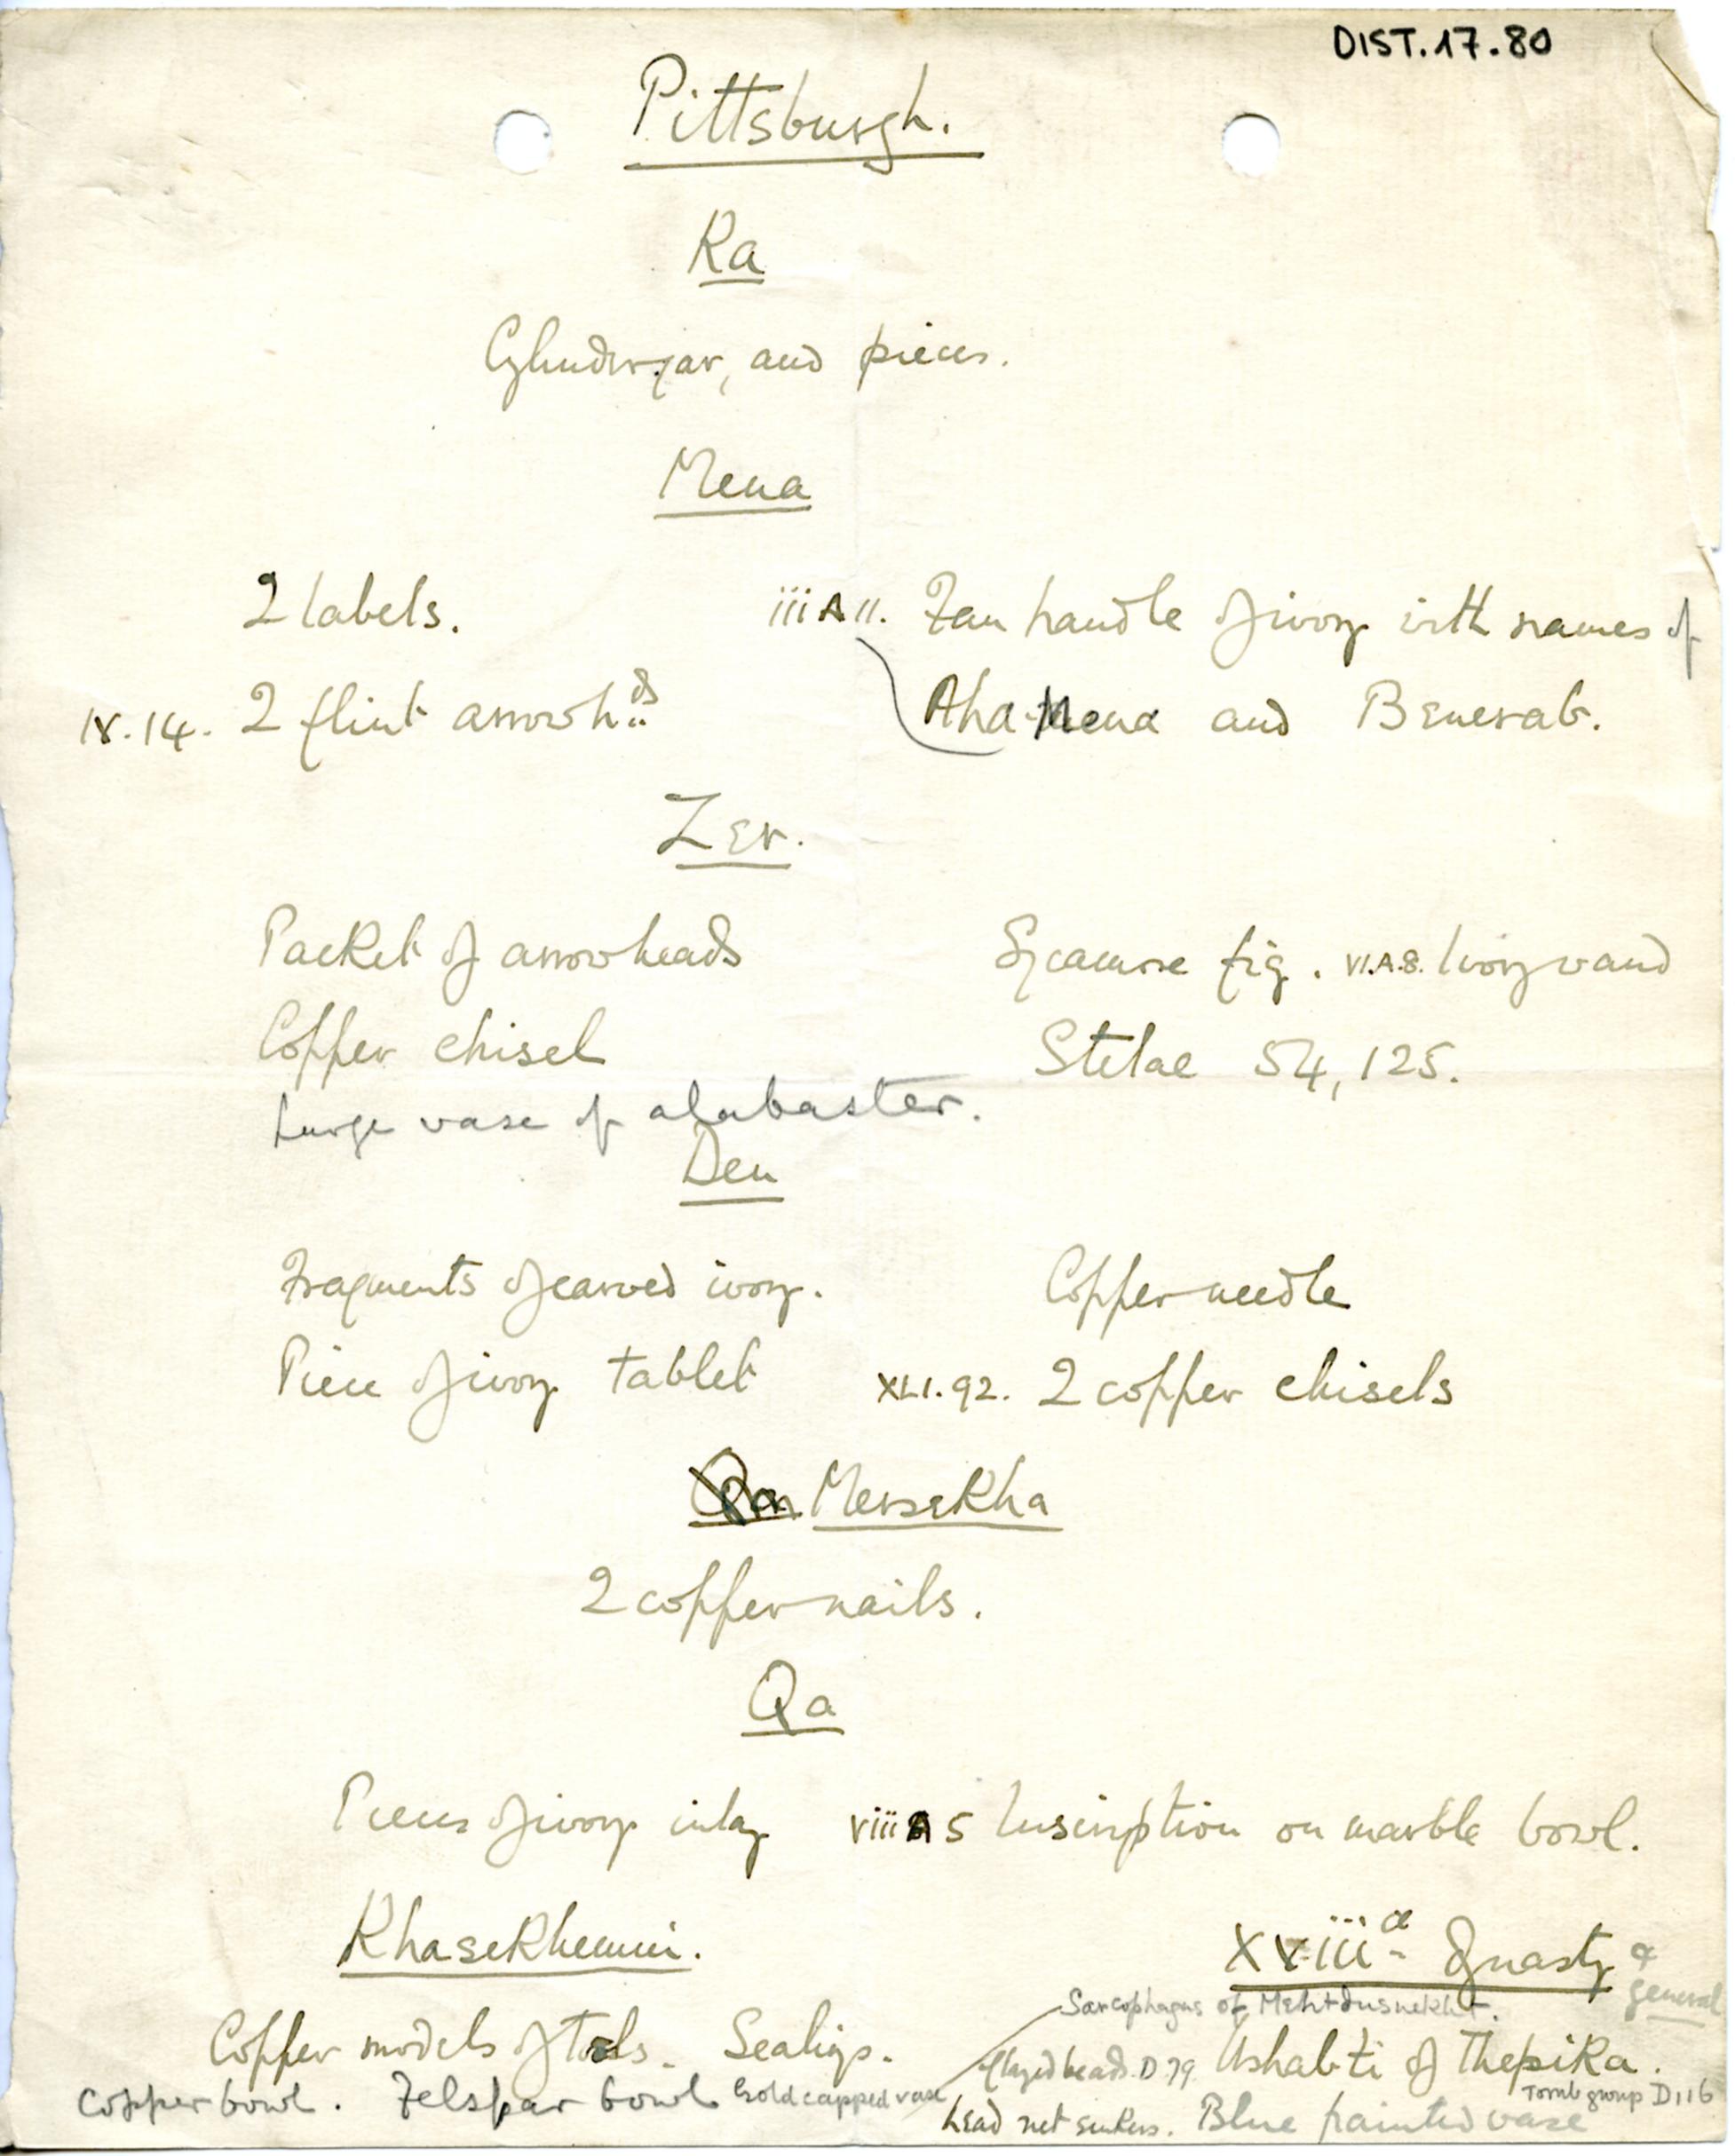 DIST.17.80
Pittsburgh.
Ka
Cylinder jar, and pieces.
Mena
2 labels.
iii A 11. Fan handle of ivory with names of
IV.14. 2 flint arrowhds
Aha-Mena and Benerab.
Zer.
Packet of arrowheads
Sycamore fig. VI.A.8. Ivory wand
Copper chisel
Stelae 54, 125.
Large vase of alabaster.
Den
Fragments of carved ivory.
Copper needle
Piece of ivory tablet
XLI.92. 2 copper chisels
Qa Mersekha
2 copper nails.
Qa
Pieces of ivory inlay
viii A 5 Inscription on marble bowl.
Khasekhemui.
XViiith Dynasty & general
Sarcophagus of
Copper models of tools. Sealings.
glazed beads. D 79 Ushabti of Thepika.
Tomb group D116
Copper bowl. Felspar bowl Gold capped vase
Lead net sinkers. Blue painted vase